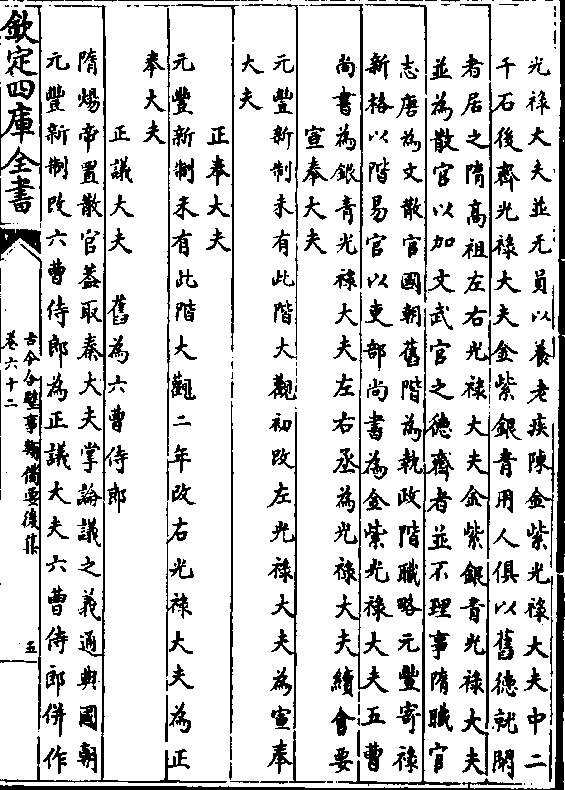 光祿大夫並无員以養老疾陳金紫光祿大夫中二
千石後齊光祿大夫金紫銀青用人俱以舊德就閒
者居之隋高祖左右光祿大夫金紫銀青光祿大夫
並為散官以加文武官之德齊者並不理事隋職官
志唐為文散官國朝舊階為執政階職略元豐寄祿
新格以階易官以吏部尚書為金紫光祿大夫五曹
尚書為銀青光祿大夫左右丞為光祿大夫續會要
宣奉大夫
元豐新制未有此階大觀初改左光祿大夫為宣奉
大夫
正奉大夫
元豐新制未有此階大觀二年改右光祿大夫為正
奉大夫
正議大夫 舊為六曹侍郎
隋煬帝置散官蓋取秦大夫掌論議之義通典國朝
元豐新制改六曹侍郎為正議大夫六曹侍郎併作
欽定四庫全書
古今合璧事類備要後集
卷六十二
五